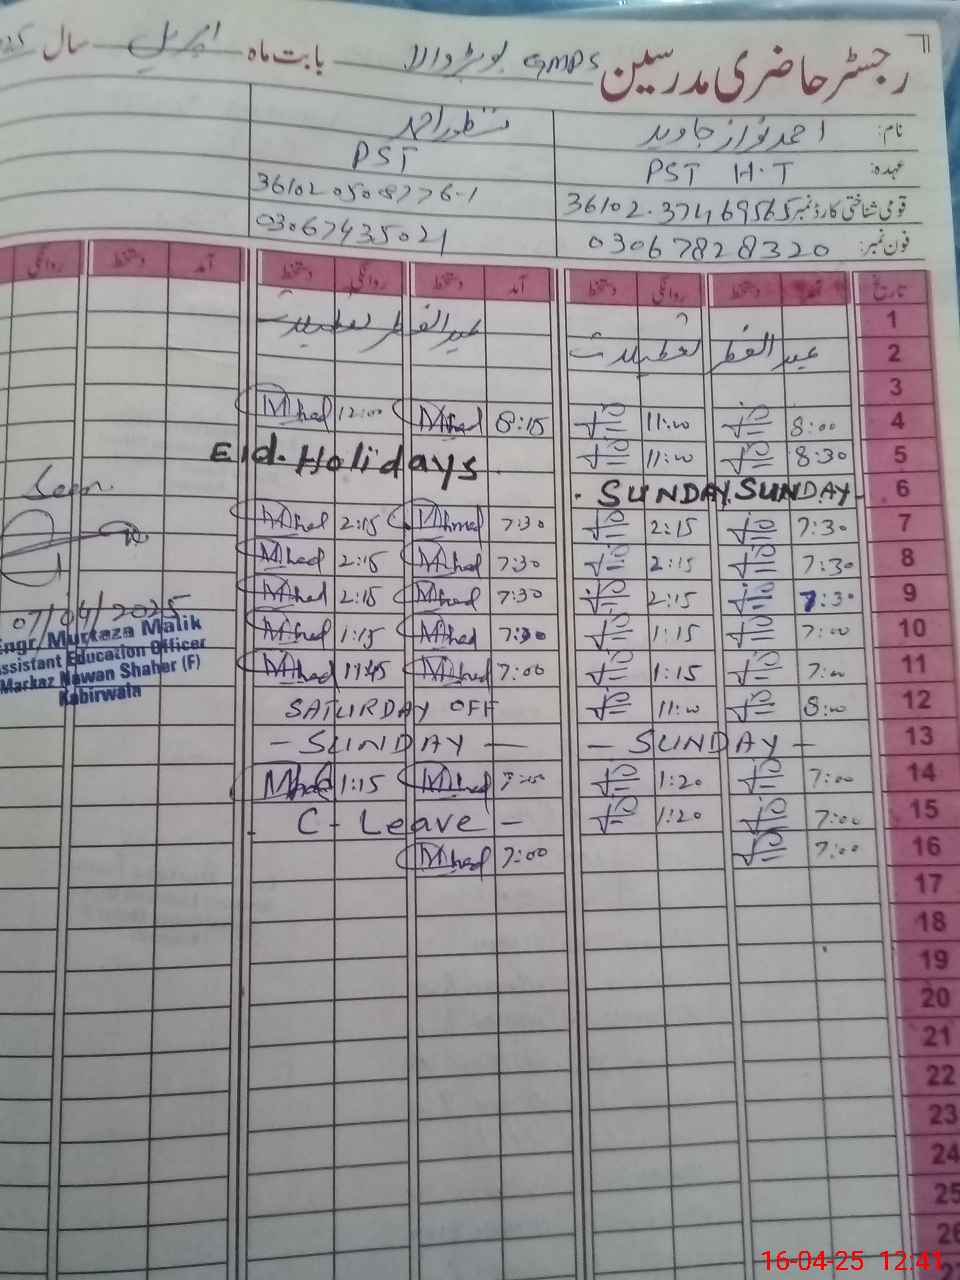 رجسٹر حاضری مدرسین GMPS بابت ماہ اپریل سال
نام: احمد نواز جاوید منظور احمد
عہدہ: PST H.T PST
قومی شناختی کارڈ نمبر 36102-37469565 36102 0508776-1
فون نمبر: 03067828320 03067435021
تاریخ آمد دستخط روانگی دستخط آمد دستخط روانگی دستخط آمد دستخط روانگی
1 عید الفطر تعطیلات
2 عید الفطر تعطیلات
3
4 8:00 11:00 8:15 12:00
5 8:30 11:00 Eid. Holidays
6 SUNDAY SUNDAY
7 7:30 2:15 7:30 2:15
8 7:30 2:15 7:30 2:15
9 7:30 2:15 7:30 2:15
10 7:00 1:15 7:30 1:15
11 7:00 1:15 7:00 11:45
12 8:00 11:00 SATURDAY OFF
13 - SUNDAY - - SUNDAY -
14 7:00 1:20 1:15
15 7:00 1:20 - C - Leave -
16 7:00 7:00
17
18
19
20
21
22
23
24
25
26
Seen
07/04/2025
Engr. Murtaza Malik
Assistant Education Officer
Markaz Nawan Shaher (F)
Kabirwala
16-04-25 12:41